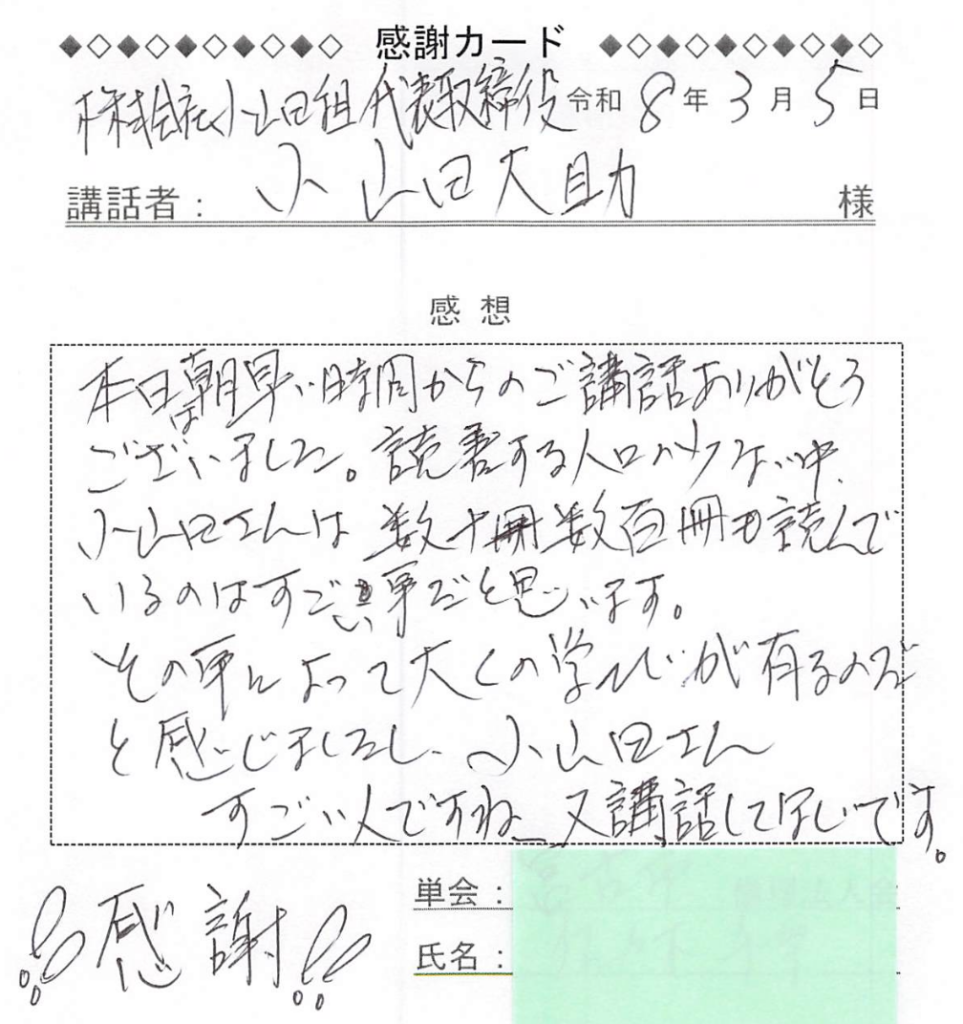 ◆◇◆◇◆◇◆◇◆◇ 感謝カード ◆◇◆◇◆◇◆◇◆◇
株式会社小山田組代表取締役 令和8年3月5日
講話者: 小山田大助 様
感想
本日は朝早い時間からのご講話ありがとう
ございました。読書する人口が少ない中、
小山田さんは数十冊数百冊も読んで
いるのはすごい事だと思います。
その事によって大くの学びが有るのだ
と感じましたし、小山田さん
すごい人ですね 又講話してほしいです。
単会:
氏名:
!!感謝!!